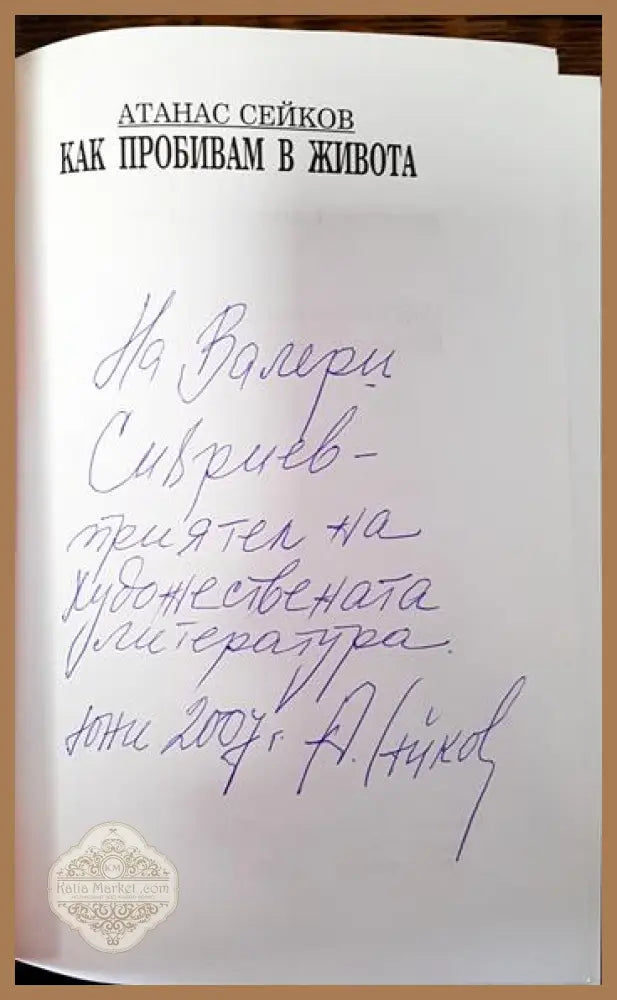 АТАНАС СЕЙКОВ
КАК ПРОБИВАМ В ЖИВОТА
На Валери
Сивриев –
приятел на
художествената
литература.
юни 2007 г. А. Сейков
KM
Katia Market .com